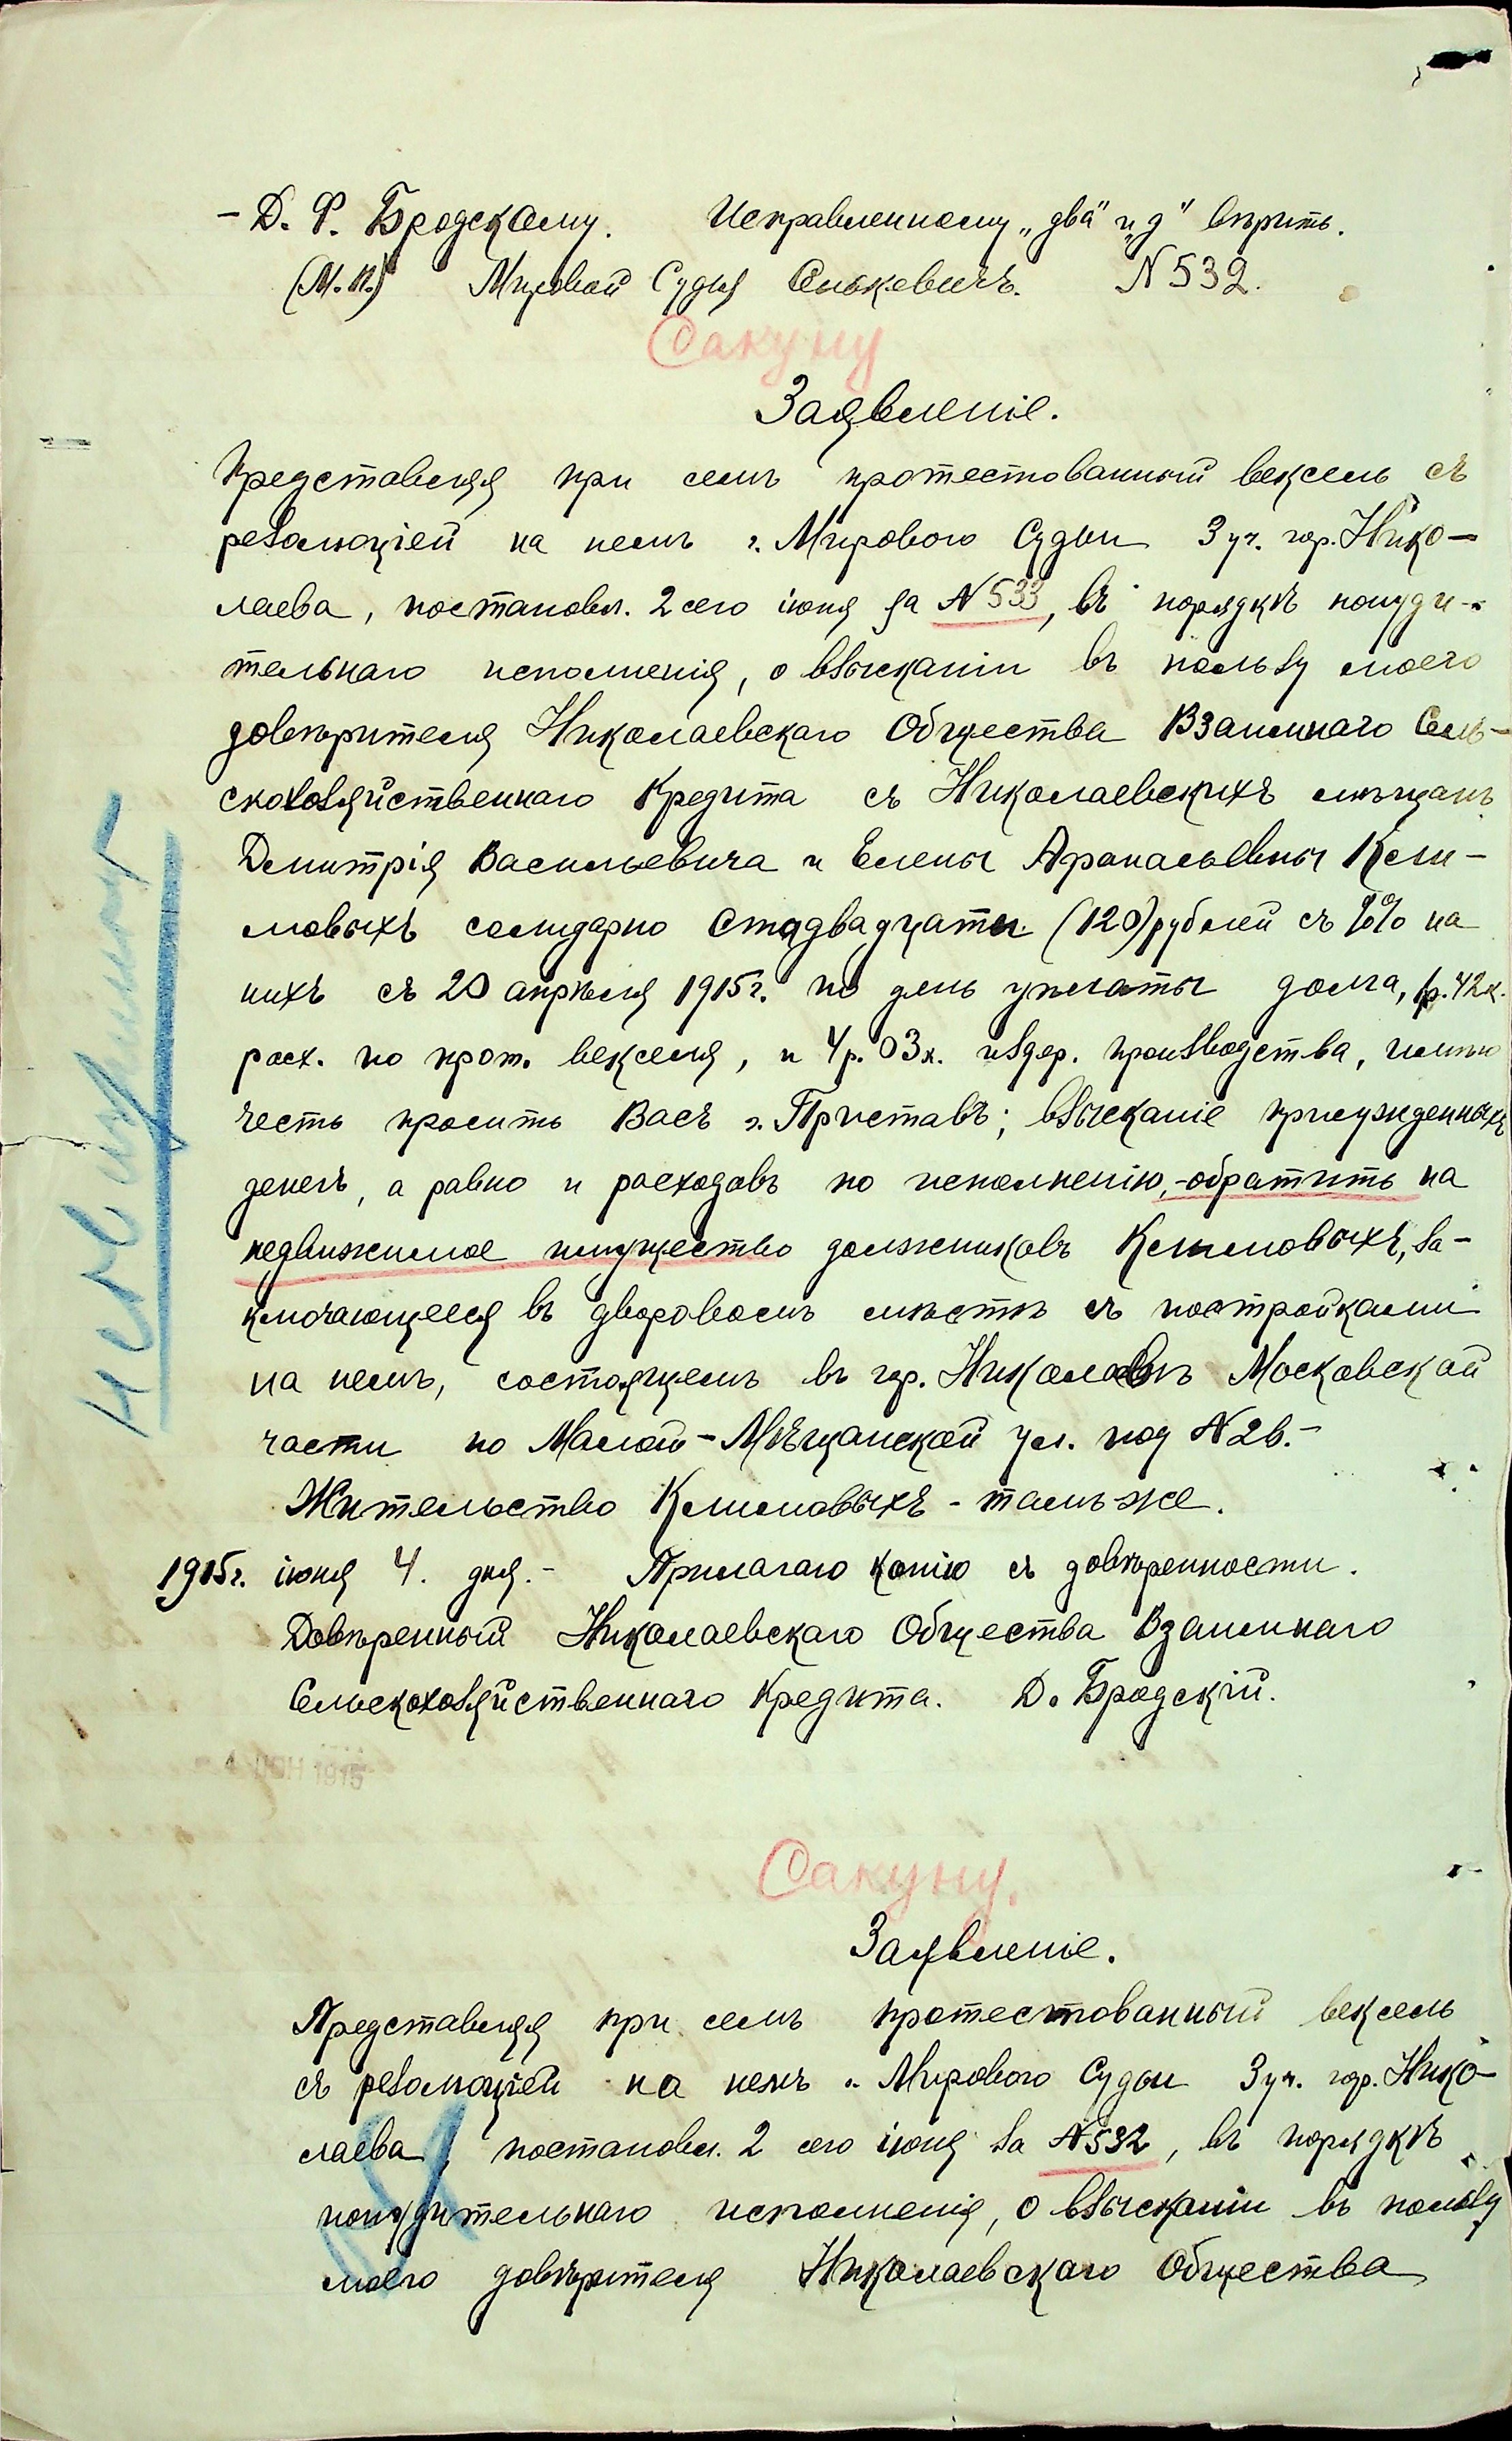 – Д. Ф. Бродскому. Исправленному „два" и „д" вѣрить.
(М.П.) Мировой Судья Сенькевичъ. N 532.
Сакуну
Заявленіе.
Представляя при семъ протестованный вексель съ
резолюціей на немъ г. Мирового Судьи 3 уч. гор. Нико–
лаева, постановл. 2 сего іюня за N 533, въ порядкѣ понуди–
тельнаго исполненія, о взысканіи въ пользу моего
довѣрителя Николаевскаго Общества Взаимнаго Сель–
скохозяйственнаго Кредита съ Николаевскихъ мѣщанъ
Дмитрія Васильевича и Елены Афанасьевны Кли–
мовыхъ солидарно стадвадцати (120) рублей съ %% на
нихъ съ 20 апрѣля 1915 г. по день уплаты долга, 1 р. 42 к.
расх. по прот. векселя, и 4 р. 03 к. издер. производства, имѣю
честь просить Васъ г. Приставъ; взысканіе присужденныхъ
денегъ, а равно и расходовъ по исполненію, –обратить на
недвижимое имущество должниковъ Климовыхъ, за–
ключающееся въ дворовомъ мѣстѣ съ постройками
на немъ, состоящемъ въ гор. Николаевѣ Московской
части по Малой–Мѣщанской ул. под N 2в.–
Жительство Климовыхъ – тамъ-же.
1915 г. іюня 4. дня.– Прилагаю копію съ довѣренности.
Довѣренный Николаевскаго Общества Взаимнаго
Сельскохозяйственнаго Кредита. Д. Бродскій.
4 ІЮН 1915
Сакуну.
Заявленіе.
Представляя при семъ протестованный вексель
съ резолюціей на немъ г. Мирового Судьи 3 уч. гор. Нико–
лаева, постановл. 2 сего іюня за N 532, въ порядкѣ
понудительнаго исполненія, о взысканіи въ пользу
моего довѣрителя Николаевскаго Общества